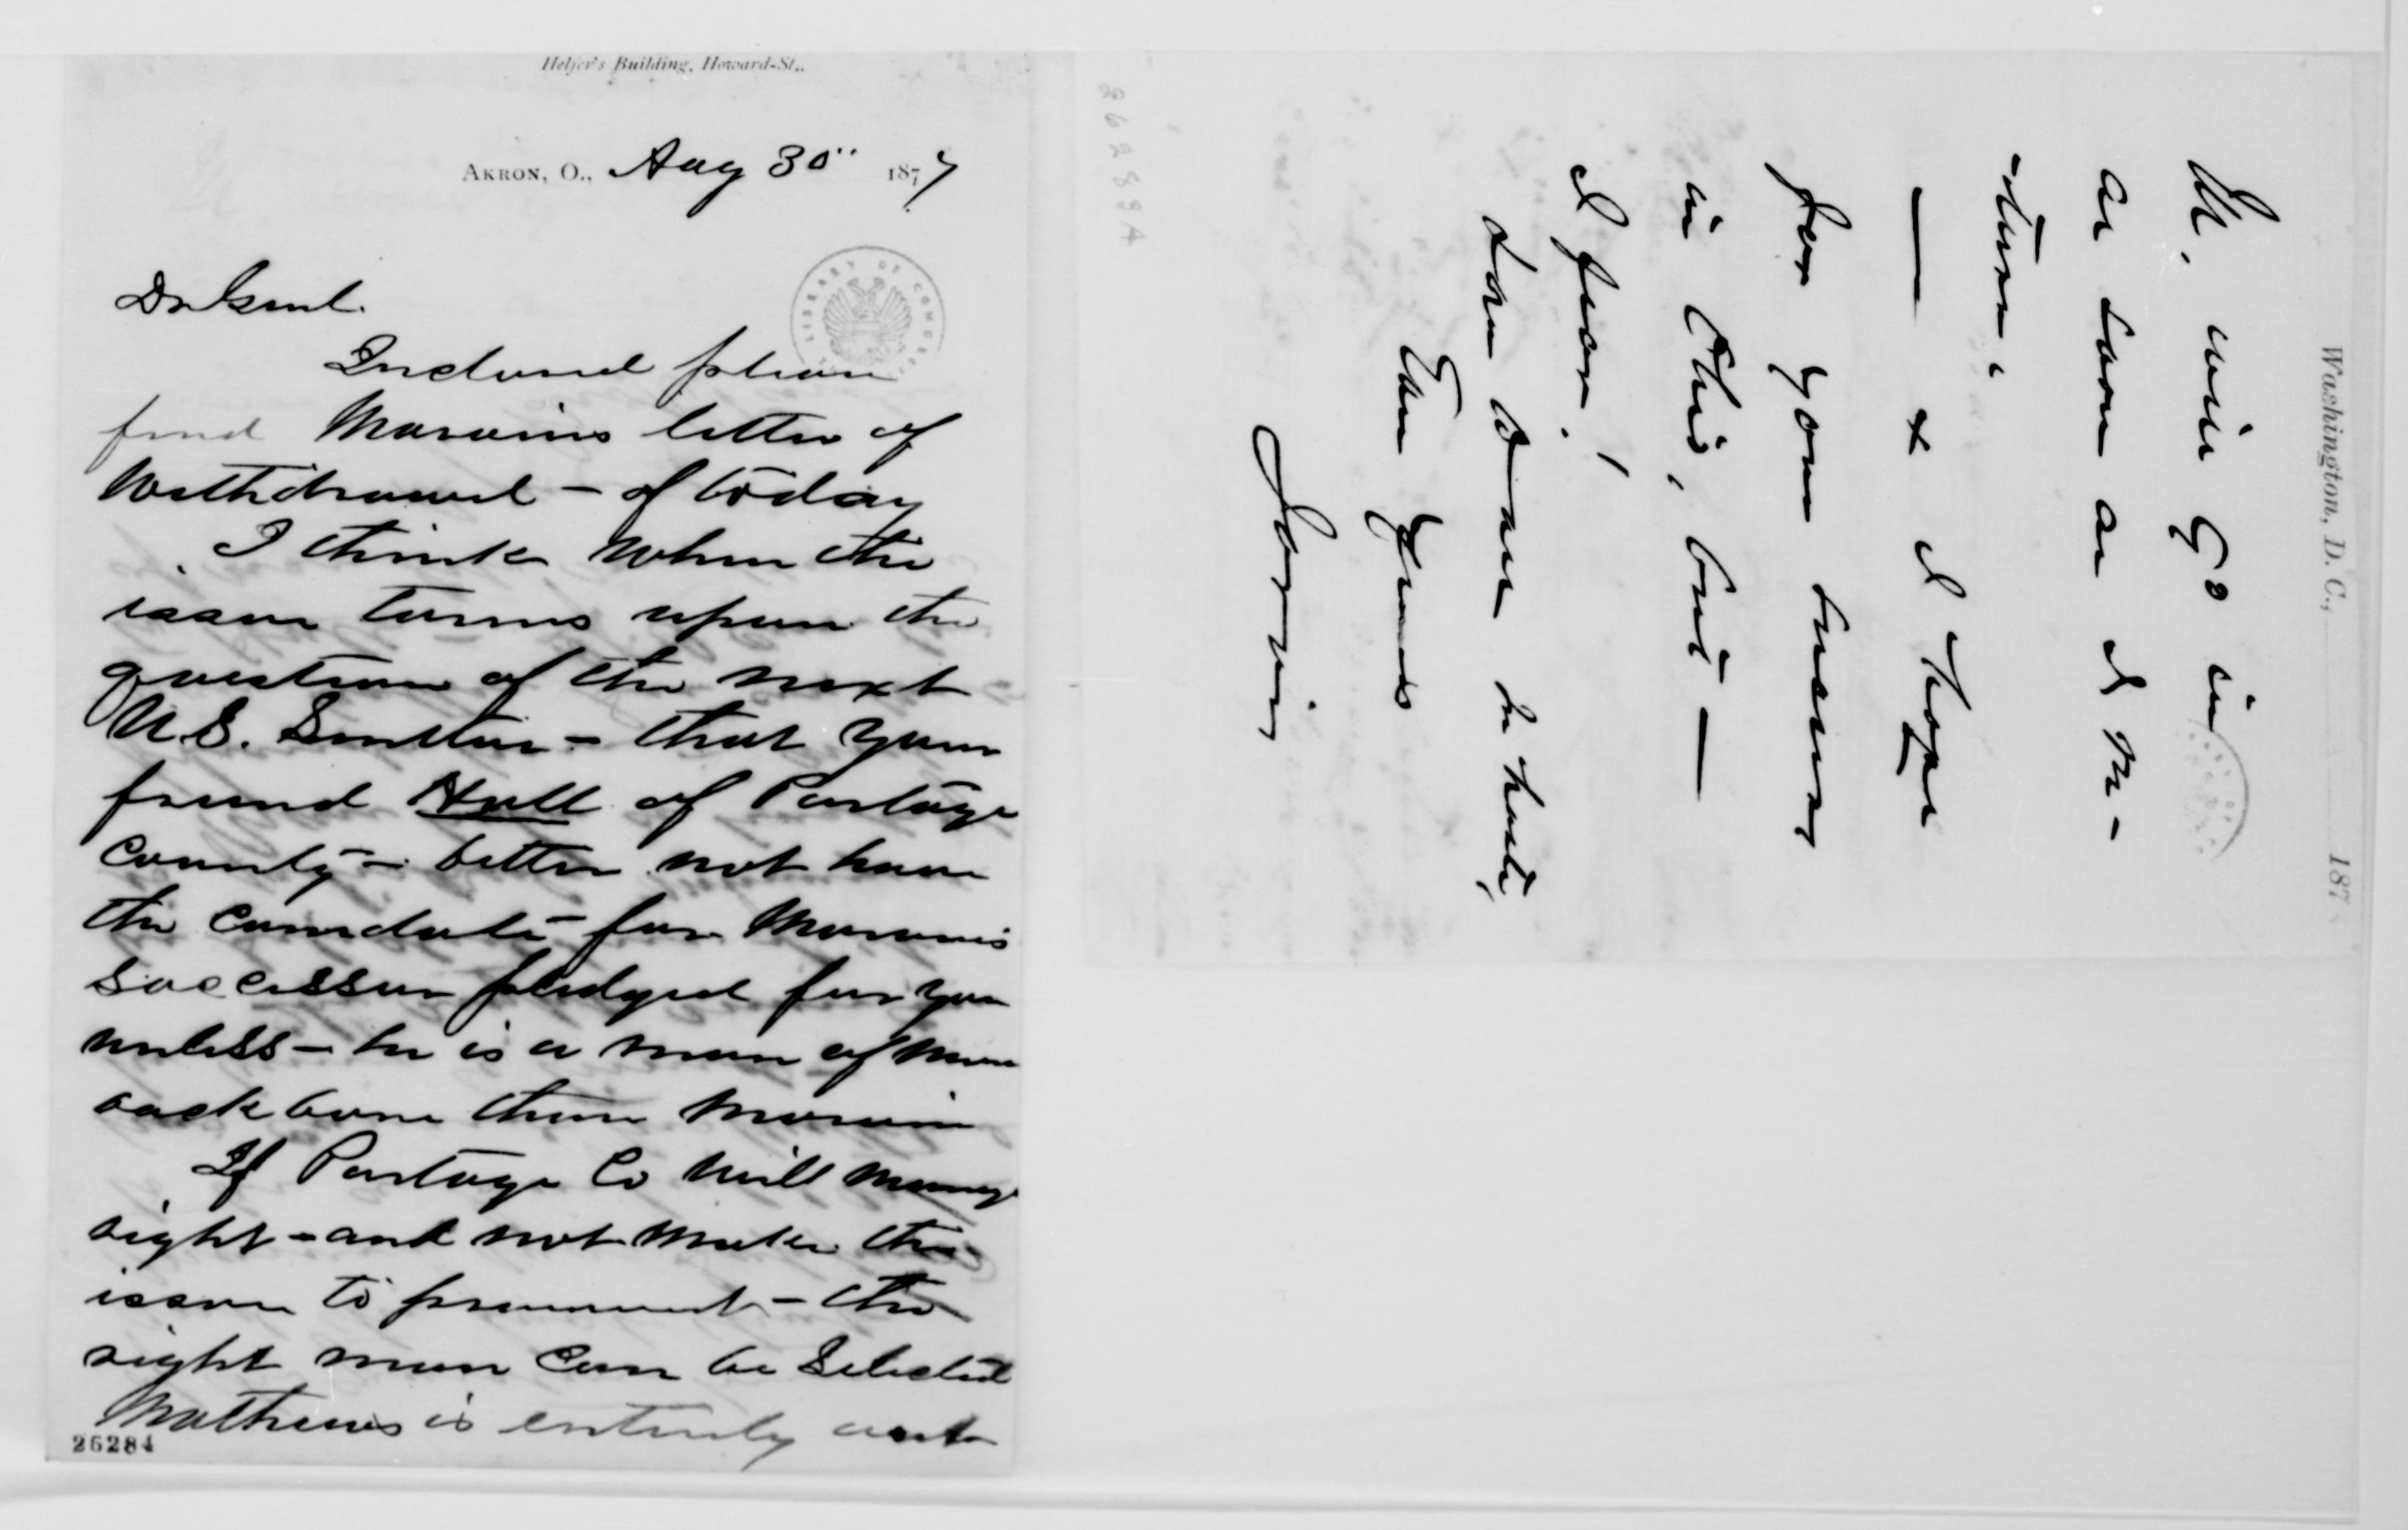 Helfer's Building, Howard-St.,
AKRON, O., Aug 30" 1877
Dr Genl.
Inclosed please
find Marvins letter of
Withdrawal - of today
I think when the
issue turns upon the
question of the next
U.S. Senator - that your
friend Hall of Portage
County - better not have
the Candidate for Marvins
Successor pledged for you
unless - he is a man of more
back bone than Marvin
If Portage Co will manage
right - and not make the
issue to prominent - the
right man can be Selected
Mathews is entirely out
26284
LIBRARY OF CONGRESS
Washington, D. C., 187
M. will go in
as soon as I re-
-turn.
— & I hope
for your success
in Ohio, but —
I fear!
Excuse Yours
in haste,
26288A